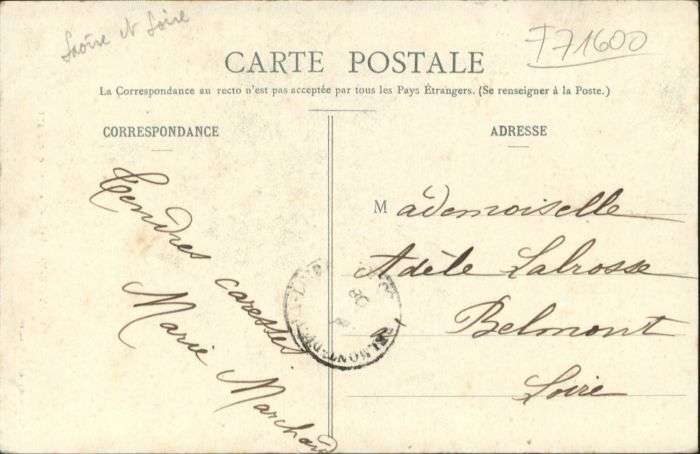 Saône et Loire
F71600
CARTE POSTALE
La Correspondance au recto n'est pas acceptée par tous les Pays Étrangers. (Se renseigner à la Poste.)
CORRESPONDANCE
Tendres caresses
Marie Marchand
ADRESSE
Mademoiselle
Adèle Labrosse
à Belmont
Loire
BELMONT-D